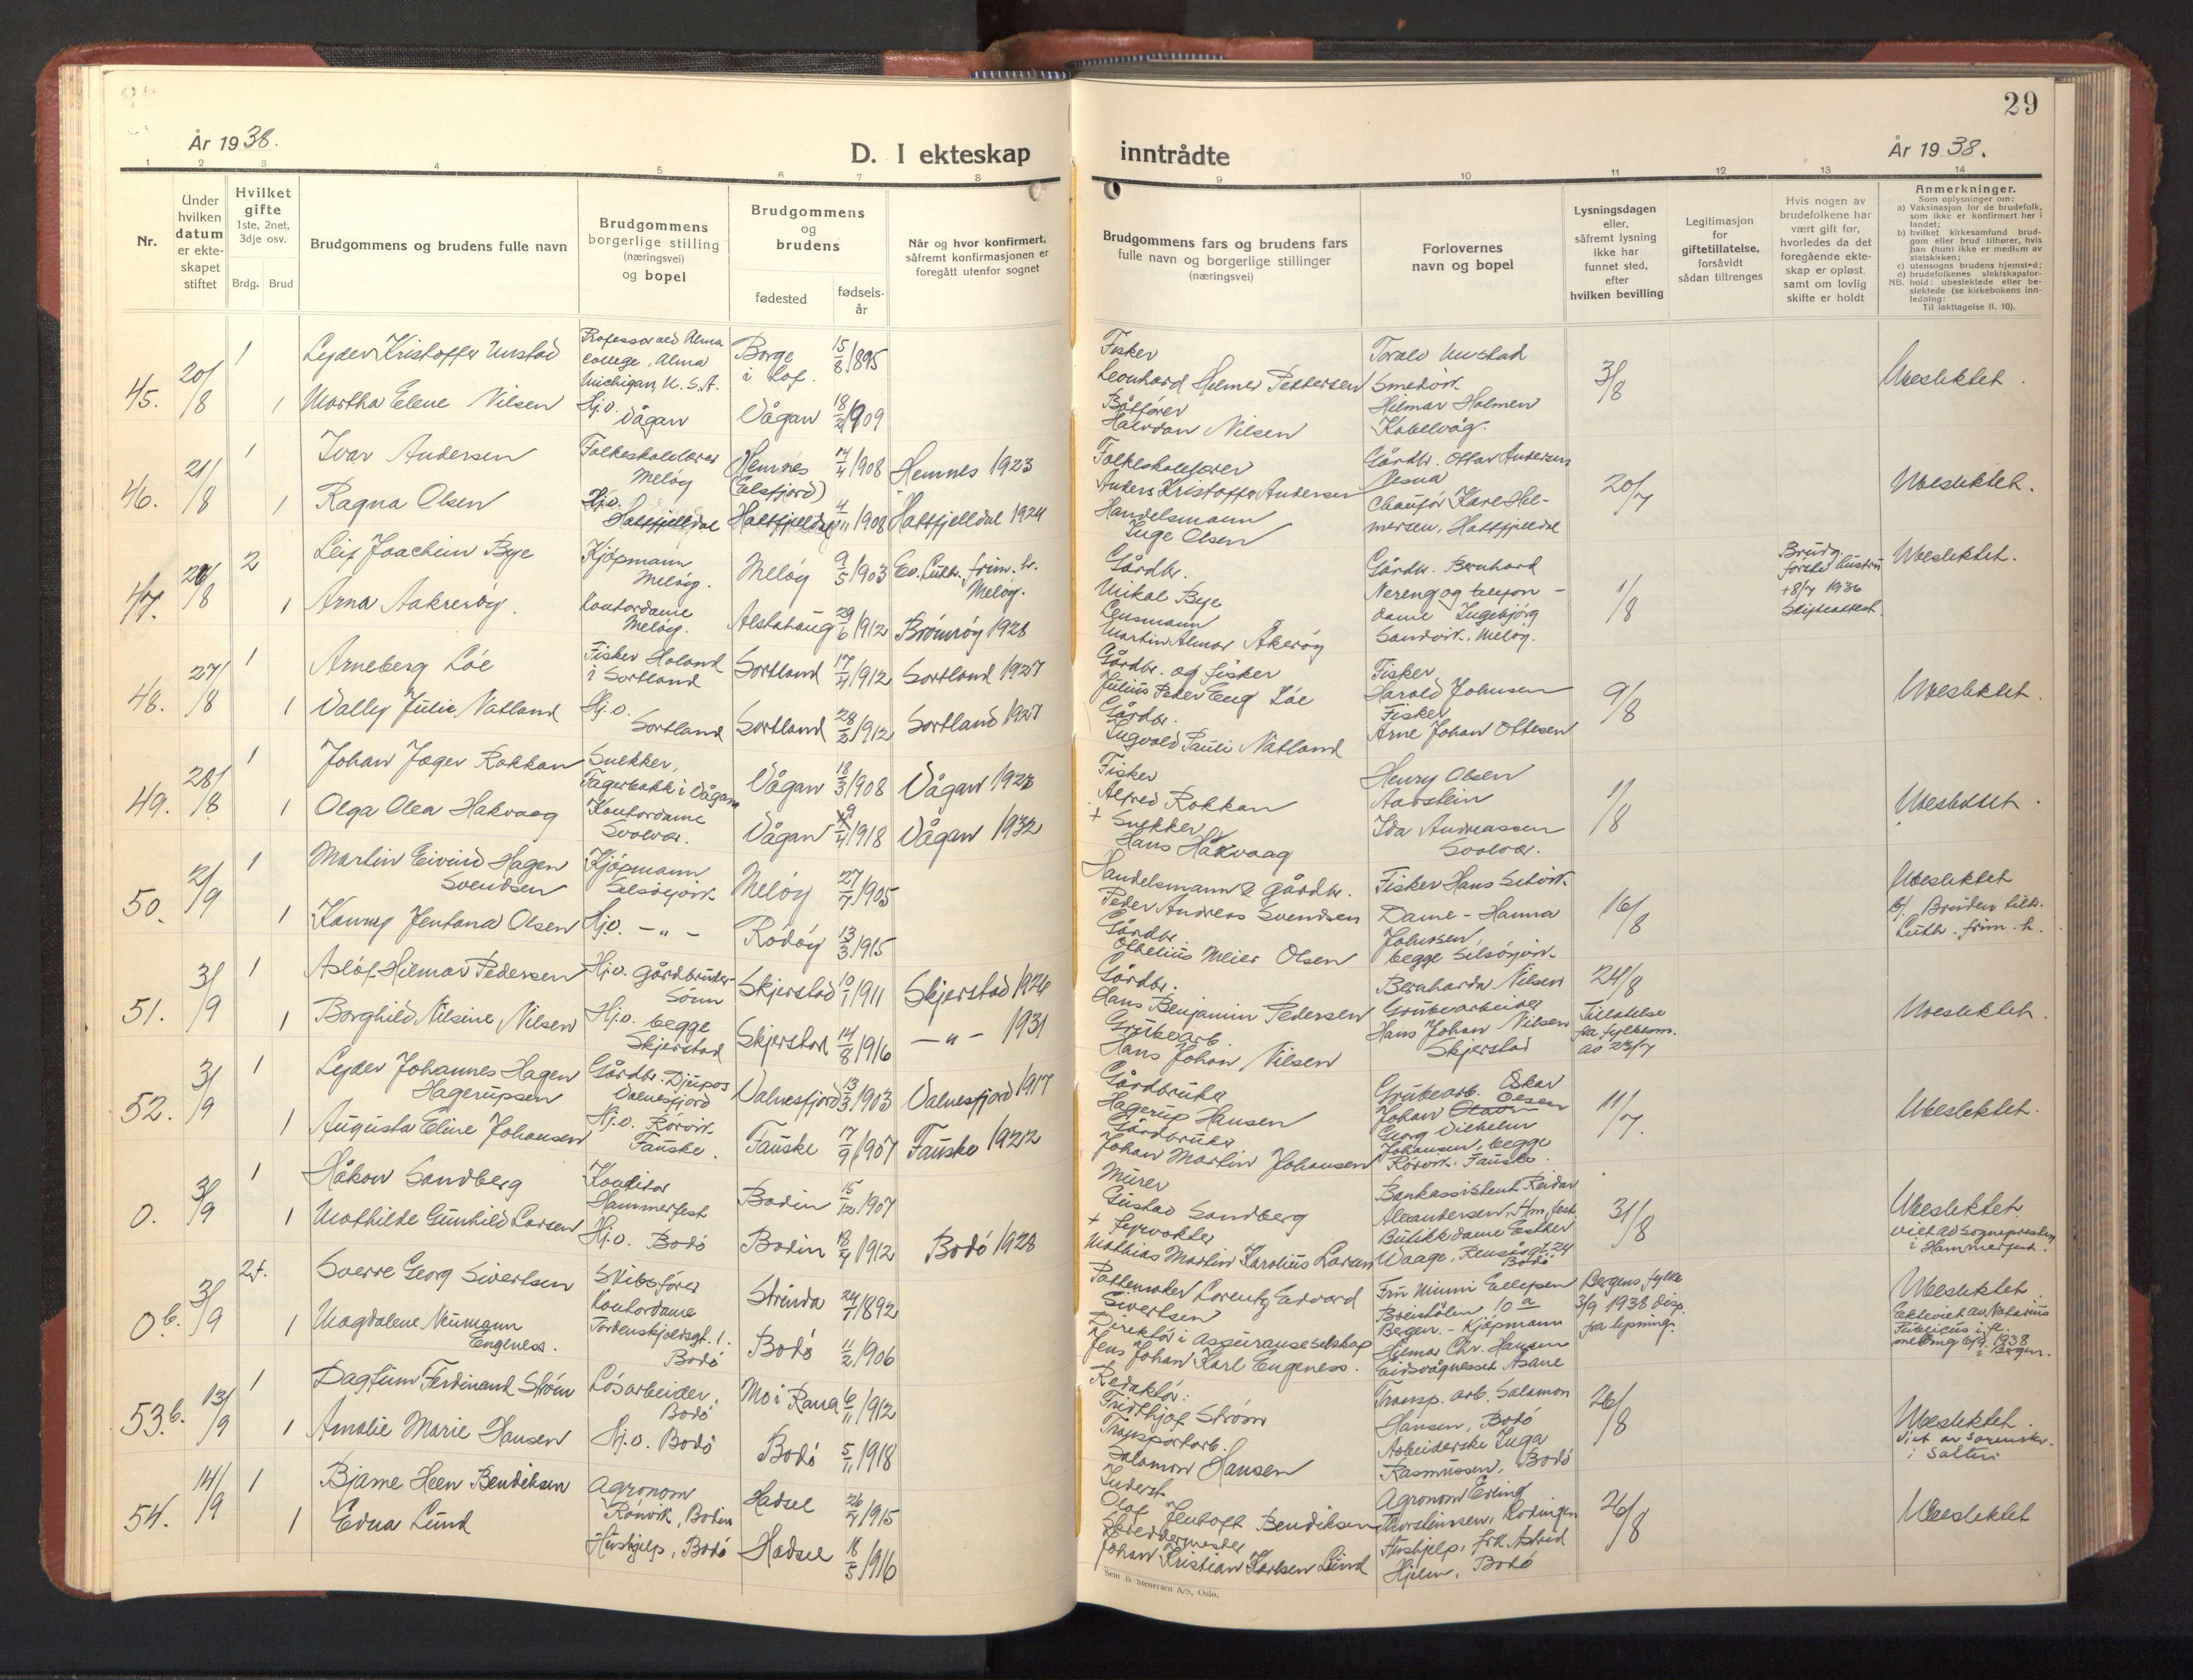 29
År 1938.
D. I ekteskap
inntrådte
År 1938.
1 2 3 4 5 6 7 8 9 10 11 12 13 14
Nr.
Under
hvilken
datum
er ekte-
skapet
stiftet
Hvilket
gifte
1ste, 2net,
3dje osv.
Brdg. Brud
Brudgommens og brudens fulle navn
Brudgommens
borgerlige stilling
(næringsvei)
og bopel
Brudgommens
og
brudens
fødested
fødsels-
år
Når og hvor konfirmert,
såfremt konfirmasjonen er
foregått utenfor sognet
Brudgommens fars og brudens fars
fulle navn og borgerlige stillinger
(næringsvei)
Forlovernes
navn og bopel
Lysningsdagen
eller,
såfremt lysning
ikke har
funnet sted,
efter
hvilken bevilling
Legitimasjon
for
giftetillatelse,
forsåvidt
sådan tiltrenges
Hvis nogen av
brudefolkene har
vært gift før,
hvorledes da det
foregående ekte-
skap er opløst,
samt om lovlig
skifte er holdt
Anmerkninger.
Som oplysninger om:
a) Vaksinasjon for de brudefolk,
som ikke er konfirmert her i
landet;
b) hvilket kirkesamfund brud-
gom eller brud tilhører, hvis
han (hun) ikke er medlem av
statskirken;
c) utensogns brudens hjemsted;
d) brudefolkenes slektskapsfor-
hold: ubeslektede eller be-
slektede (se kirkebokens inn-
ledning:
NB. Til iakttagelse II. 10).
45. 20/8 1
Professor ved Alma
College, Alma
Michigan, U.S.A.
Borge
i Lof.
15/8 1895
Fisker
Leonhard Hilmer Pettersen
Smedvik
3/8
Ubeslektet.
1 Martha Elene Nilsen
Hj.o.
Vågan
Vågan 18/2 1909
Halvdan Nilsen
Hilmar Holmen
Kabelvåg.
46. 21/8 1 Ivar Andersen
Folkeskolelærer
Meløy
Hemnes
(Elsfjord)
14/4 1908
Hemnes 1923
Folkeskolelærer
Anders Kristoffer Andersen
Gårdbr. Ottar Andersen
Nesna
20/7
Ubeslektet.
1 Ragna Olsen
Hj.o.
Hattfjelldal
Hattfjelldal 4/11 1908
Hattfjelldal 1924
Handelsmann
Inge Olsen
Chauffør Kåre Hil-
mersen, Hattfjelldal
47. /8 2 Leif Joachim Bye
Kjøpmann
Meløy.
Meløy 9/5 1903
Ev. Luth. frim. h.
Meløy.
Gårdbr.
Mikal Bye
Gårdbr. Bernhard
Nereng og telefon-
1/8
Brudg.
første hustru
+ 8/7 1936
Skifteattest.
Ubeslektet.
1 Arna Aakerøy.
Kontordame
Meløy.
Alstahaug 29/6 1912
Brønnøy 1928
Lensmann
Martin Almar Åkerøy
dame Ingebjørg
Sandvik, Meløy.
48. 27/8 1 Arneberg Löe
Fisker Holand
i Sortland
Sortland 17/4 1912
Sortland 1927
Gårdbr. og fisker
Julius Peder Eng Löe
Fisker
Harald Johnsen
9/8
Ubeslektet.
1 Vally Julie Natland
Hj.o.
Sortland
Sortland 28/2 1912
Sortland 1927
Gårdbr.
Ingvald Pauli Natland
Fisker
Arne Johan Ottesen
49. 28/8 1 Johan Jæger Rokkan
Snekker,
Fagerbakk i Vågan
Vågan 18/3 1908
Vågan 1923
Fisker
Alfred Rokkan
Henry Olsen
Aarstein
1/8
Ubeslektet.
1 Olga Olea Hakvaag
Kontordame
Svolvær.
Vågan 9/4 1918
Vågan 1932
+ Snekker
Hans Håkvaag
Ida Andreassen
Svolvær.
50. 2/9 1 Martin Eivind Hagen
Svendsen
Kjøpmann
Selsøyvik
Meløy 27/7 1905
Handelsmann & gårdbr.
Peder Andreas Svendsen
Fisker Hans Selsøvik
16/8
Ubeslektet
b). Bruden tilh.
Luth. frim. h.
1 Jentana Olsen
Hj.o. -"-
Rødøy 13/3 1915
Gårdbr.
Othelius Meier Olsen
Dame - Hanna
Johnsen,
begge Selsøyvik.
51. 3/9 1 Asløf Hilmar Pedersen
Hj.o. gårdbruker-
sønn
Skjerstad 10/1 1911
Skjerstad 1926
Gårdbr.
Hans Benjamin Pedersen
Bernharda Nilsen
Grubearbeider
24/8
Tillatelse
fra fylkesm.
av 23/7
Ubeslektet.
1 Borghild Nilsine Nilsen
Hj.o. begge
Skjerstad
Skjerstad 14/8 1916
-"- 1931
Grubearb.
Hans Johan Nilsen
Hans Johan Nilsen
Skjerstad
52. 3/9 1 Lyder Johannes Hagen
Hagerupsen
Gårdbr. Djupos
Valnesfjord
Valnesfjord 13/3 1903
Valnesfjord 1917
Gårdbruker
Hagerup Hansen
Grubearb. Oskar
Johan Olsen
11/7.
Ubeslektet.
1 Augusta Eline Johansen
Hj.o. Rørvik
Fauske.
Fauske 17/9 1907
Fauske 1922
Gårdbruker
Johan Martin Johansen
Georg Vilhelm
Johansen, begge
Rørvik, Fauske.
0. 3/9 1 Håkon Sandberg
Konditor
Hammerfest
Bodin 15/12 1907
Murer
Gustav Sandberg
Bankassistent Reidar
Alexandersen, Hm.fest.
31/8
Ubeslektet.
viet av sognepresten
i Hammerfest.
1 Mathilde Gunhild Larsen
Hj.o. Bodö
Bodin 18/4 1912
Bodö 1928
+ Fyrvokter
Mathias Martin Karolius Larsen
Butikkdame Esther
Waage, Rensåsgt. 24
Bodö
0b. 3/9 2. Sverre Georg Sivertsen
Skibsfører
Strinda 24/7 1892
Pottemaker Lorentz Edvard
Sivertsen
Fru Minni Ellefsen
Breistølen 10 a
Bergen. - Kjøpmann
Bergens fylke
3/9 1938 disp.
fra lysning.
Ubeslektet.
Ekteviet av Notarius
Publicus i fl.
melding 6/9 1938
i Bergen.
1 Magdalene Neumann
Engeness.
Kontordame
Tordenskjoldsgt. 1.
Bodö
Bodö 11/2 1906
Direktør i assuranseselskap
Jens Johan Karl Engeness.
Hilmar Chr. Hansen
Eidsvågnesset Åsane
53.b. 13/9 1 Dagfinn Ferdinand Strøm
Løsarbeider,
Bodö
Mo i Rana 6/11 1912
Redaktør:
Fridthjof Strøm
Transp. arb. Salamon
Hansen, Bodö
26/8
Ubeslektet.
Viet av sorenskr.
i Salten
1 Amalie Marie Hansen
Hj.o. Bodö
Bodö 5/11 1918
Transportarb.
Salamon Hansen
Arbeiderske Inga
Rasmussen, Bodö
54. 14/9 1 Bjarne Heen Bendiksen
Agronom
Rønvik, Bodin
Hadsel 26/7 1915
Inderst.
Olaf Jentoft Bendiksen
Agronom Erling
Thorsteinssen, Lødingen
26/8
Ubeslektet
1 Edna Lund
Hushjelp, Bodö
Hadsel 16/5 1916
Skreddermester
Johan Kristian Karlsen Lund
Hushjelp, frk. Astrid
Hjelm, Bodö
Sem & Stenersen A/S, Oslo.